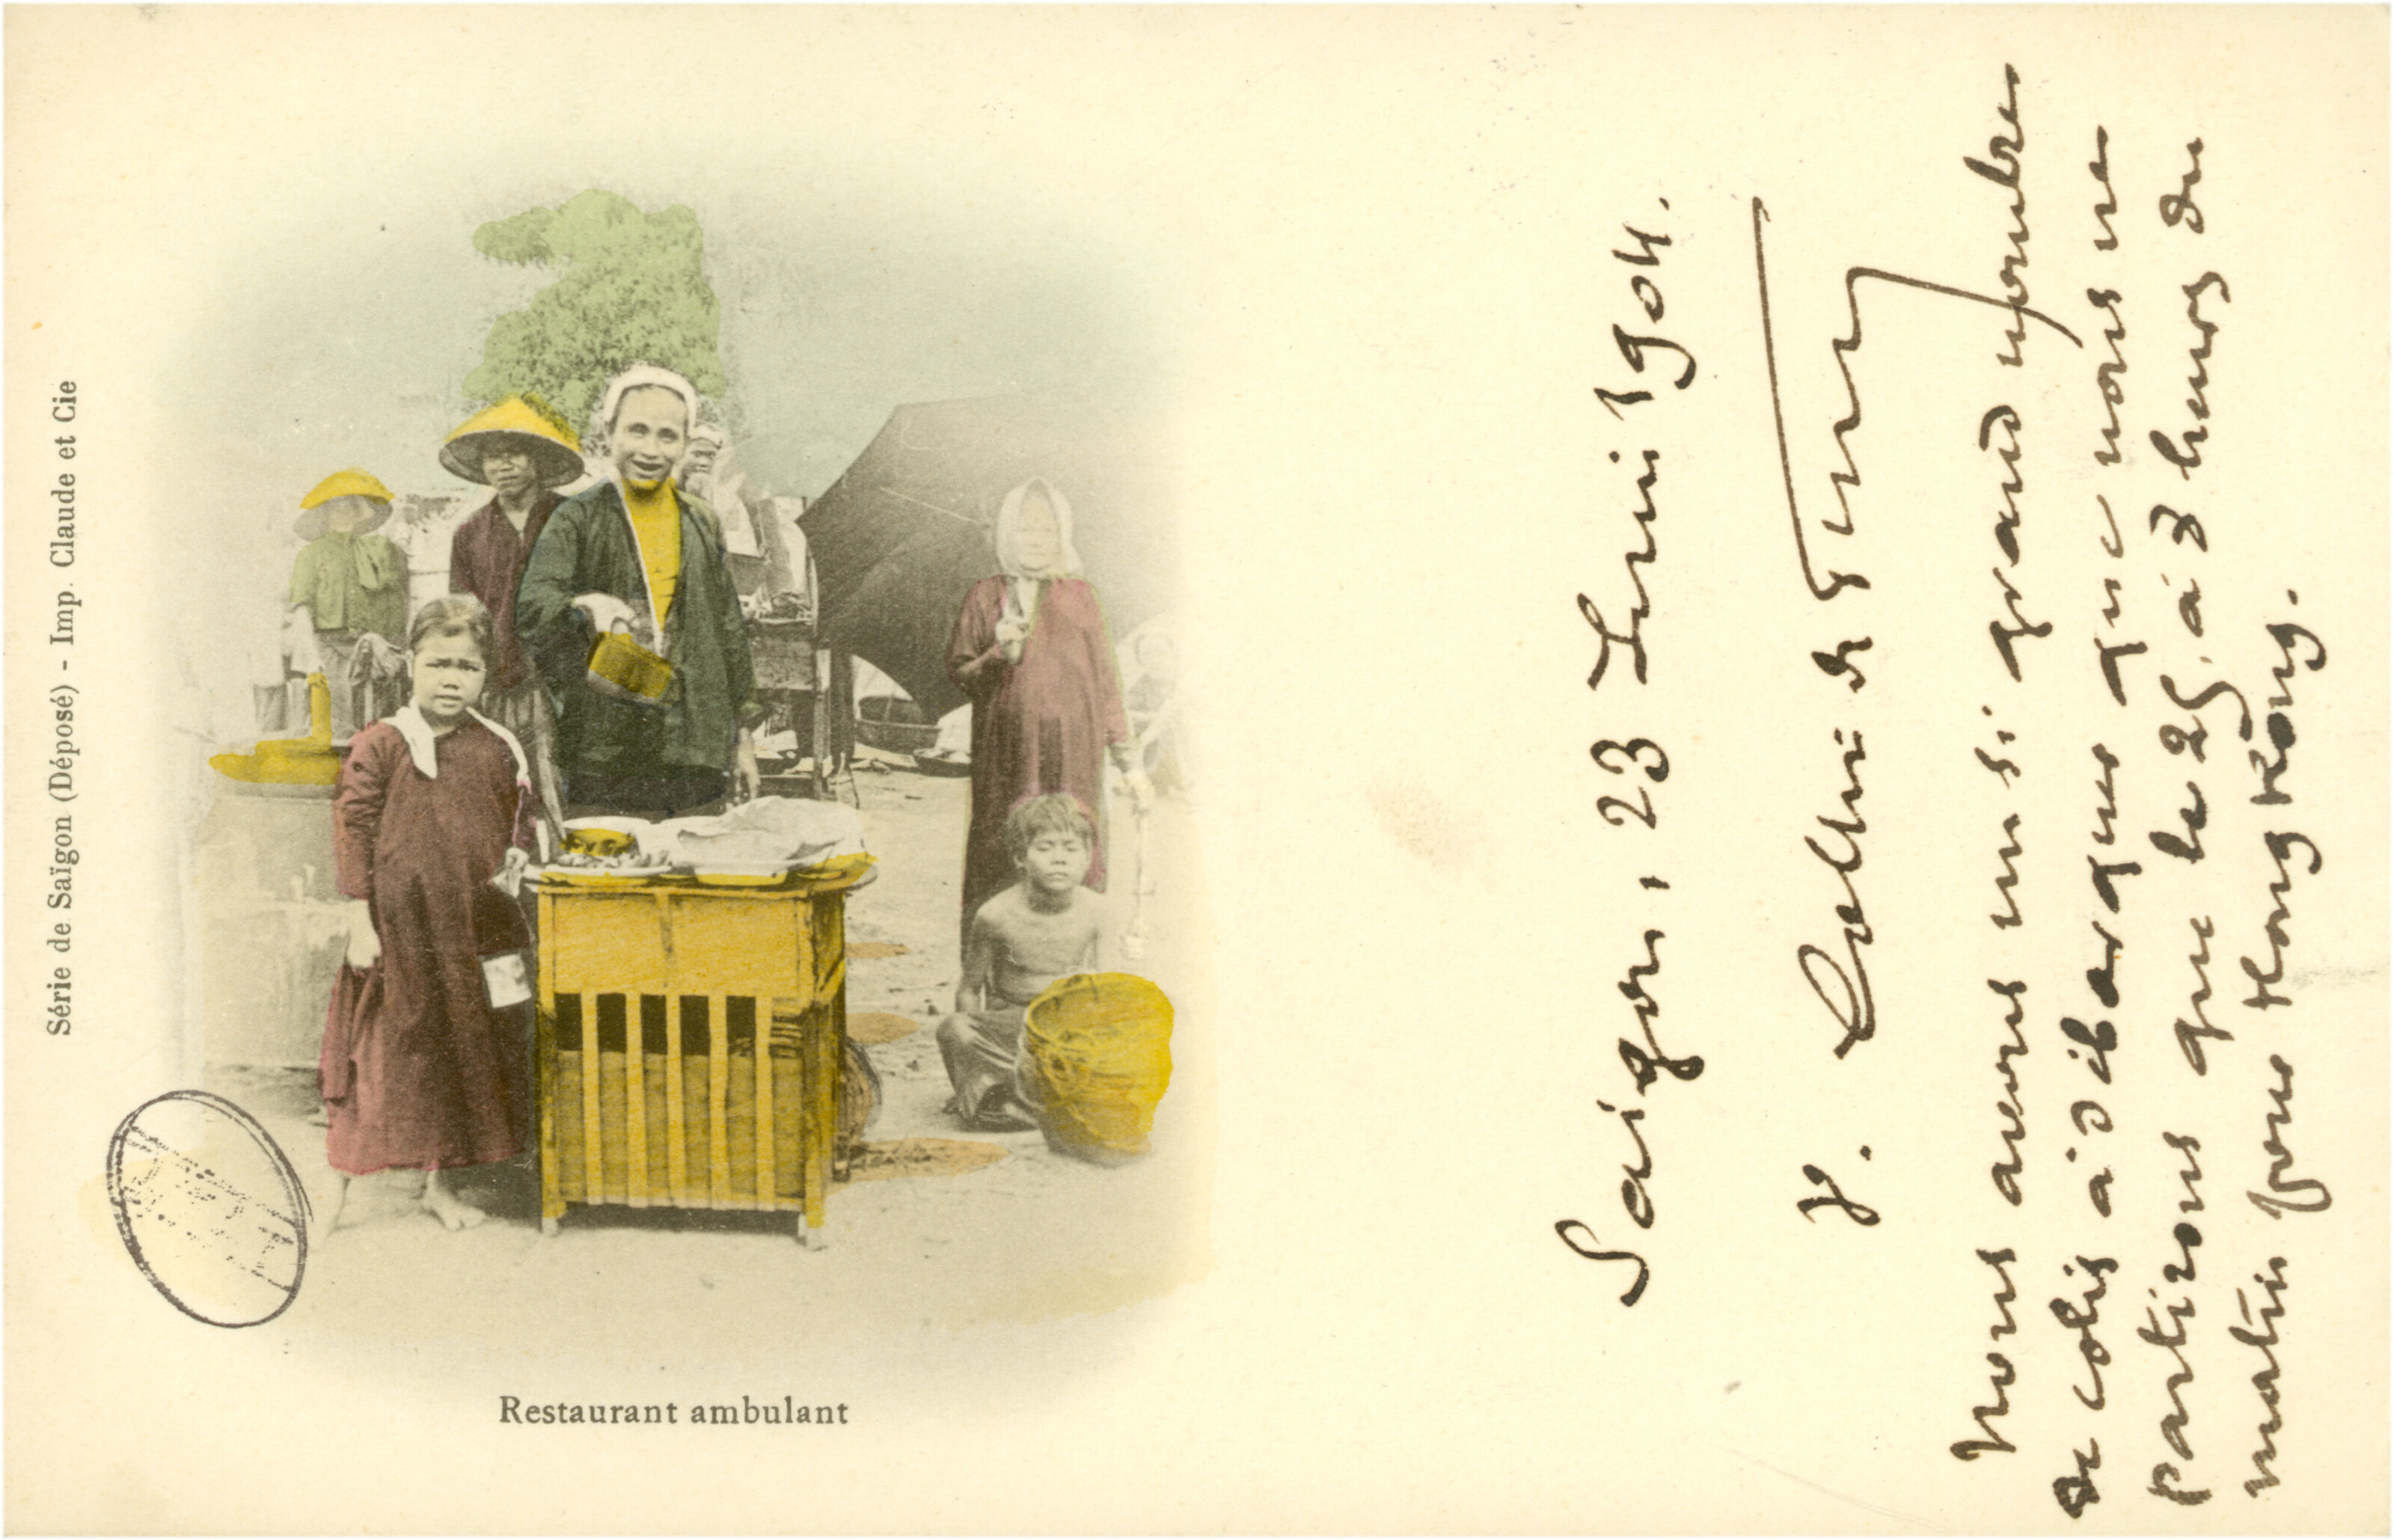 Série de Saïgon (Déposé) - Imp. Claude et Cie
Restaurant ambulant
Saigon, 23 Juin 1904.
Nous avons un si grand nombre
de colis à débarquer que nous ne
partirons que le 25, à 3 heures du
matin pour Hong Kong.